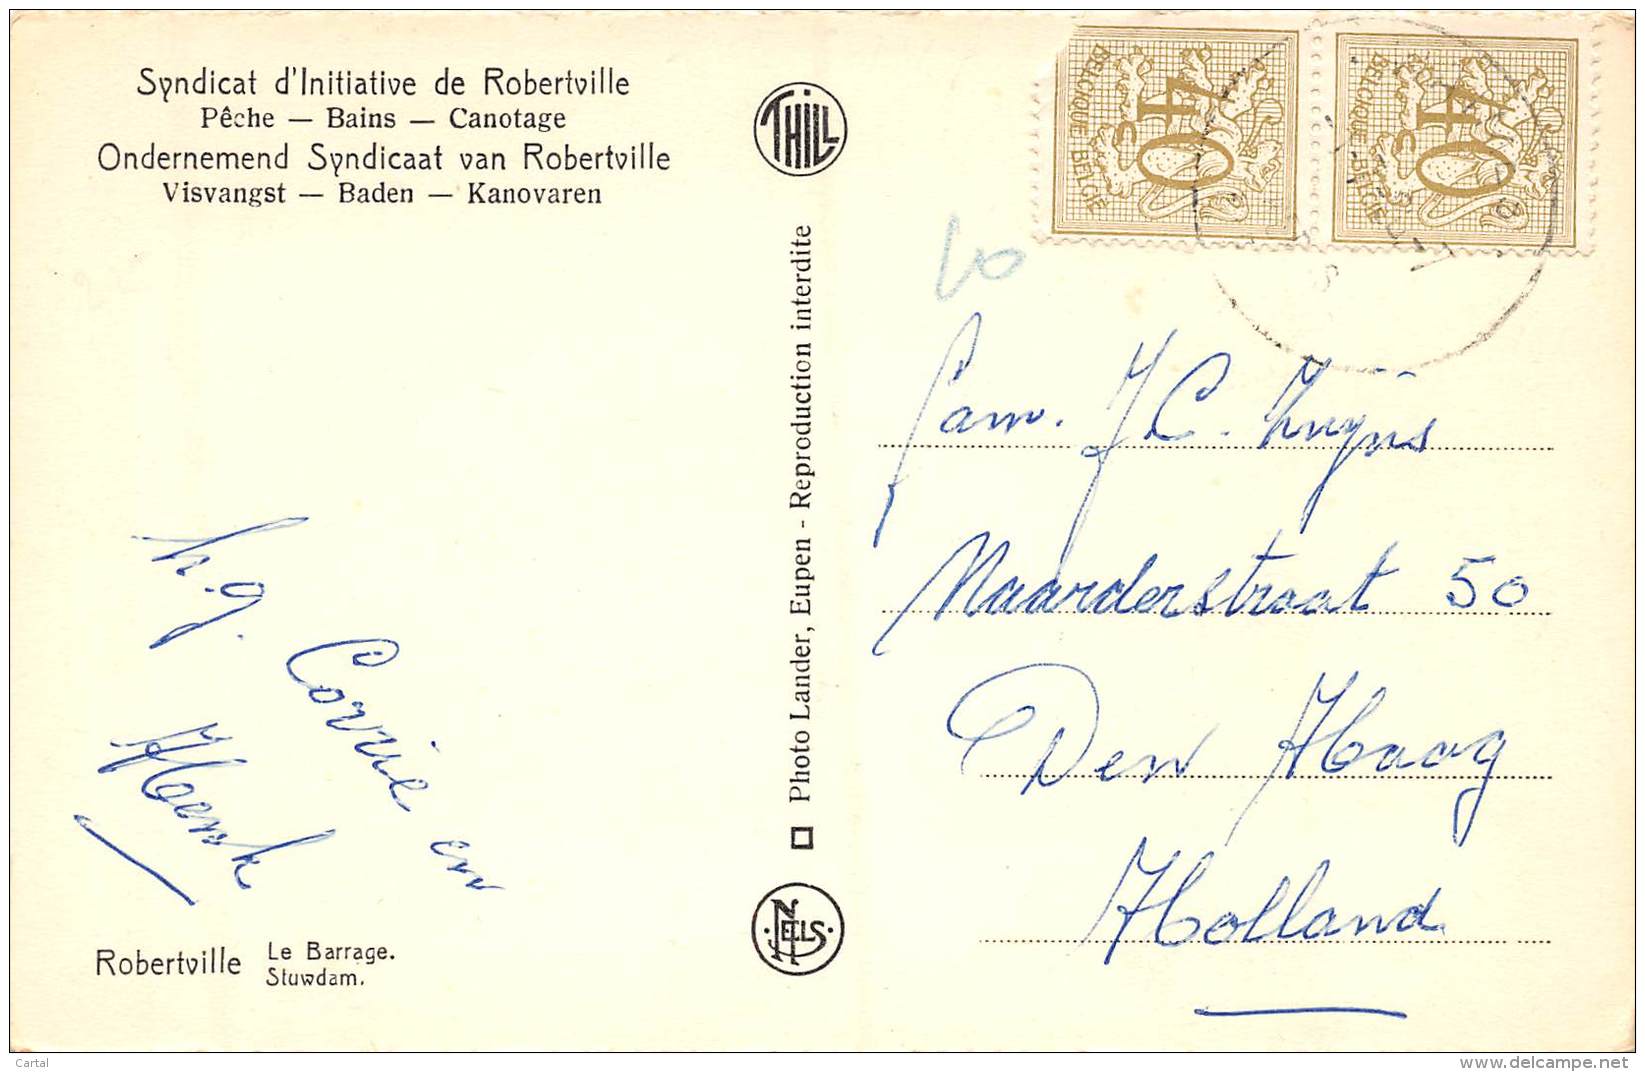 Syndicat d'Initiative de Robertville
Pêche — Bains — Canotage
Ondernemend Syndicaat van Robertville
Visvangst — Baden — Kanovaren
THILL
Photo Lander, Eupen - Reproduction interdite
NELS
BELGIQUE BELGIE
40c
BELGIQUE - BELGIE
40c
10
Fam. J C. Kuijs
Naarderstraat 50
Den Haag
Holland
h.g.
Corrie en
Henk
Robertville Le Barrage.
Stuwdam.
Cartal
www.delcampe.net